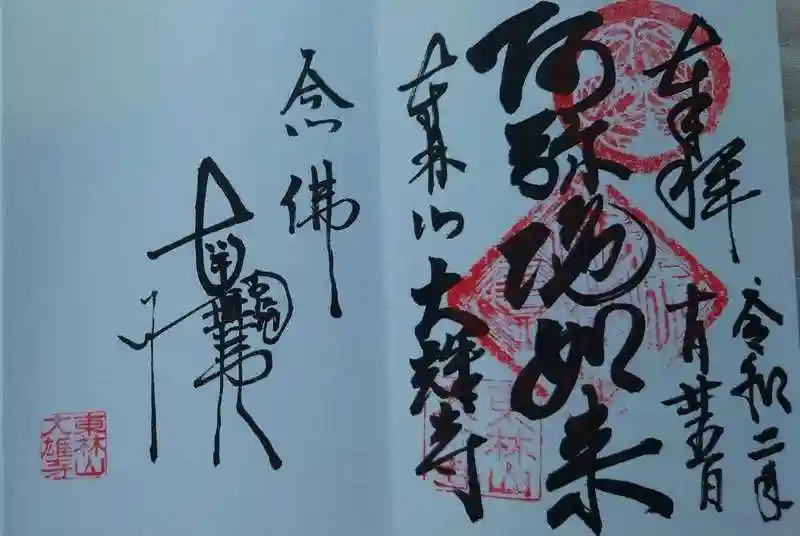 奉拝
令和二年
阿弥陀如来
東林山 大雄寺
東林山
念佛
東林山
大雄寺